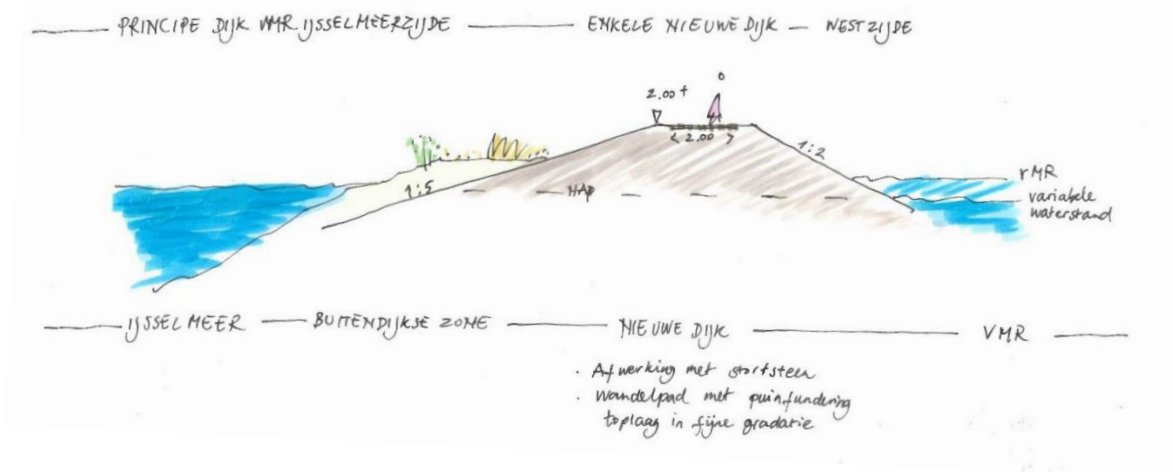 PRINCIPE DIJK VMR IJSSELMEERZIJDE — ENKELE NIEUWE DIJK — WESTZIJDE
2.00+
< 2.00 >
1:2
1:5
NAP
VMR
variabele
waterstand
IJSSELMEER — BUITENDIJKSE ZONE — NIEUWE DIJK — VMR
· Afwerking met stortsteen
· Wandelpad met puinfundering
toplaag in fijne gradatie